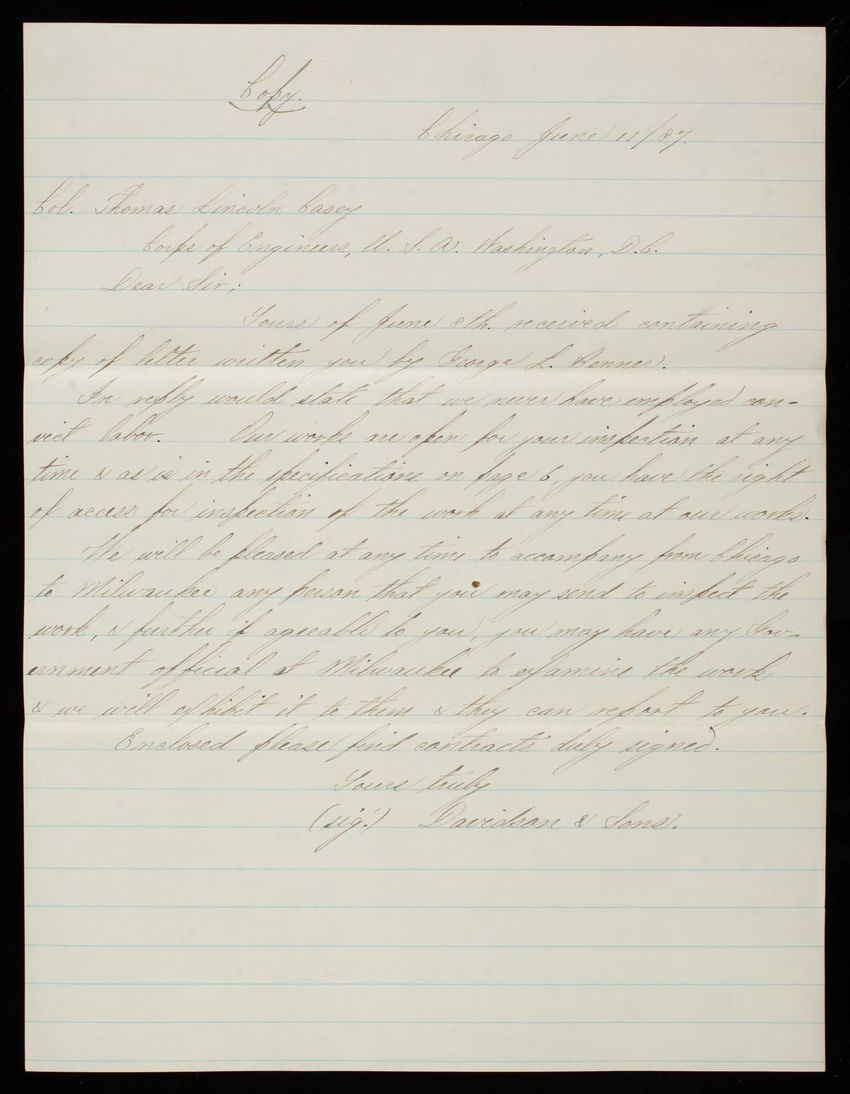 Copy.
Chicago June 11/87.
Col. Thomas Lincoln Casey
Corps of Engineers, U. S. A. Washington, D.C.
Dear Sir;
Yours of June 8th. received containing
copy of letter written you by George L. Benner.
In reply would state that we never have employed con-
vict labor. Our works are open for your inspection at any
time & as is in the specifications on page 6, you have the right
of access for inspection of the work at any time at our works.
We will be pleased at any time to accompany from Chicago
to Milwaukee any person that you may send to inspect the
work, & further if agreeable to you, you may have any Gov-
ernment official at Milwaukee to examine the work
& we will exhibit it to them & they can report to you.
Enclosed please find contracts duly signed.
Yours truly
(sig.) Davidson & Sons.